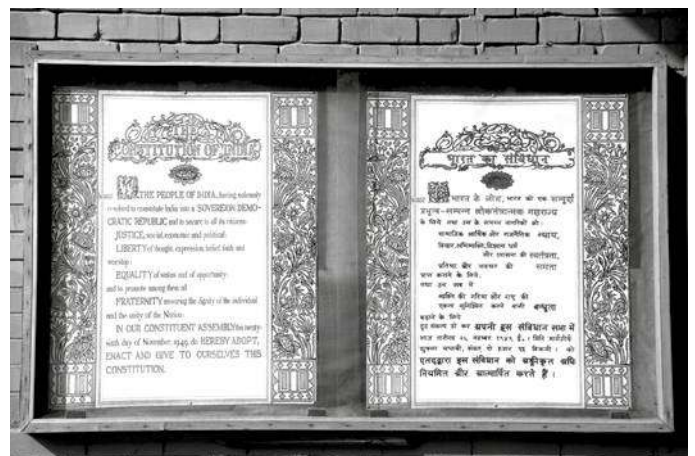 THE
CONSTITUTION OF INDIA
WE, THE PEOPLE OF INDIA, having solemnly
resolved to constitute India into a SOVEREIGN DEMO-
CRATIC REPUBLIC and to secure to all its citizens:
JUSTICE, social, economic and political;
LIBERTY of thought, expression, belief, faith and
worship;
EQUALITY of status and of opportunity;
and to promote among them all
FRATERNITY assuring the dignity of the individual
and the unity of the Nation;
IN OUR CONSTITUENT ASSEMBLY this twenty-
sixth day of November, 1949, do HEREBY ADOPT,
ENACT AND GIVE TO OURSELVES THIS
CONSTITUTION.
भारत का संविधान
हम भारत के लोग, भारत को एक सम्पूर्ण
प्रभुत्व-सम्पन्न लोकतंत्रात्मक गणराज्य
के लिये तथा उस के समस्त नागरिकों को:
सामाजिक आर्थिक और राजनैतिक न्याय,
विचार, अभिव्यक्ति, विश्वास धर्म
और उपासना की स्वतंत्रता,
प्रतिष्ठा और अवसर की समता
प्राप्त कराने के लिये,
तथा उन सब में
व्यक्ति की गरिमा और राष्ट्र की
एकता सुनिश्चित करने वाली बन्धुता
बढ़ाने के लिये
दृढ़ संकल्प हो कर अपनी इस संविधान सभा में
आज तारीख २६ नवम्बर १९४९ ई० (मिति मार्गशीर्ष
शुक्ला सप्तमी, संवत् दो हजार छह विक्रमी) को
एतद्द्वारा इस संविधान को अङ्गीकृत अधि
नियमित और आत्मार्पित करते हैं।